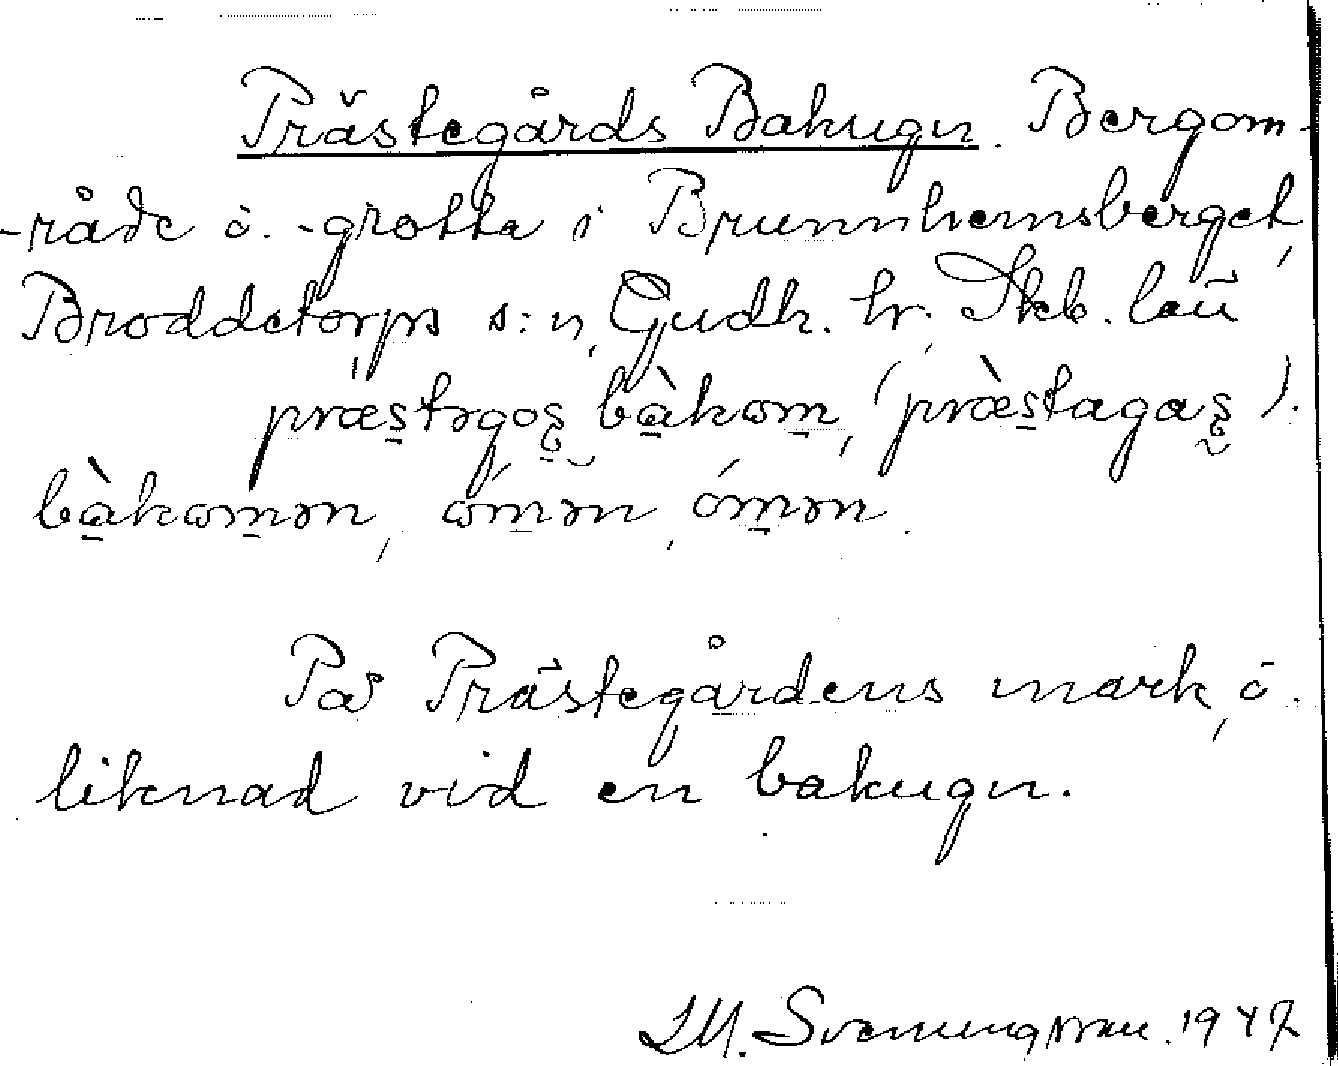 Prästegårds Bakugn. Bergom-
-råde o. -grotta i Brunnhemsberget,
Broddetorps s:n, Gudh. hr. Skb. län
præstəgos bàkom, (præ̀staga s).
bàkomən, ómən, ómən.
På Prästegårdens mark, o.
liknad vid en bakugn.
Svenungsson. 1947